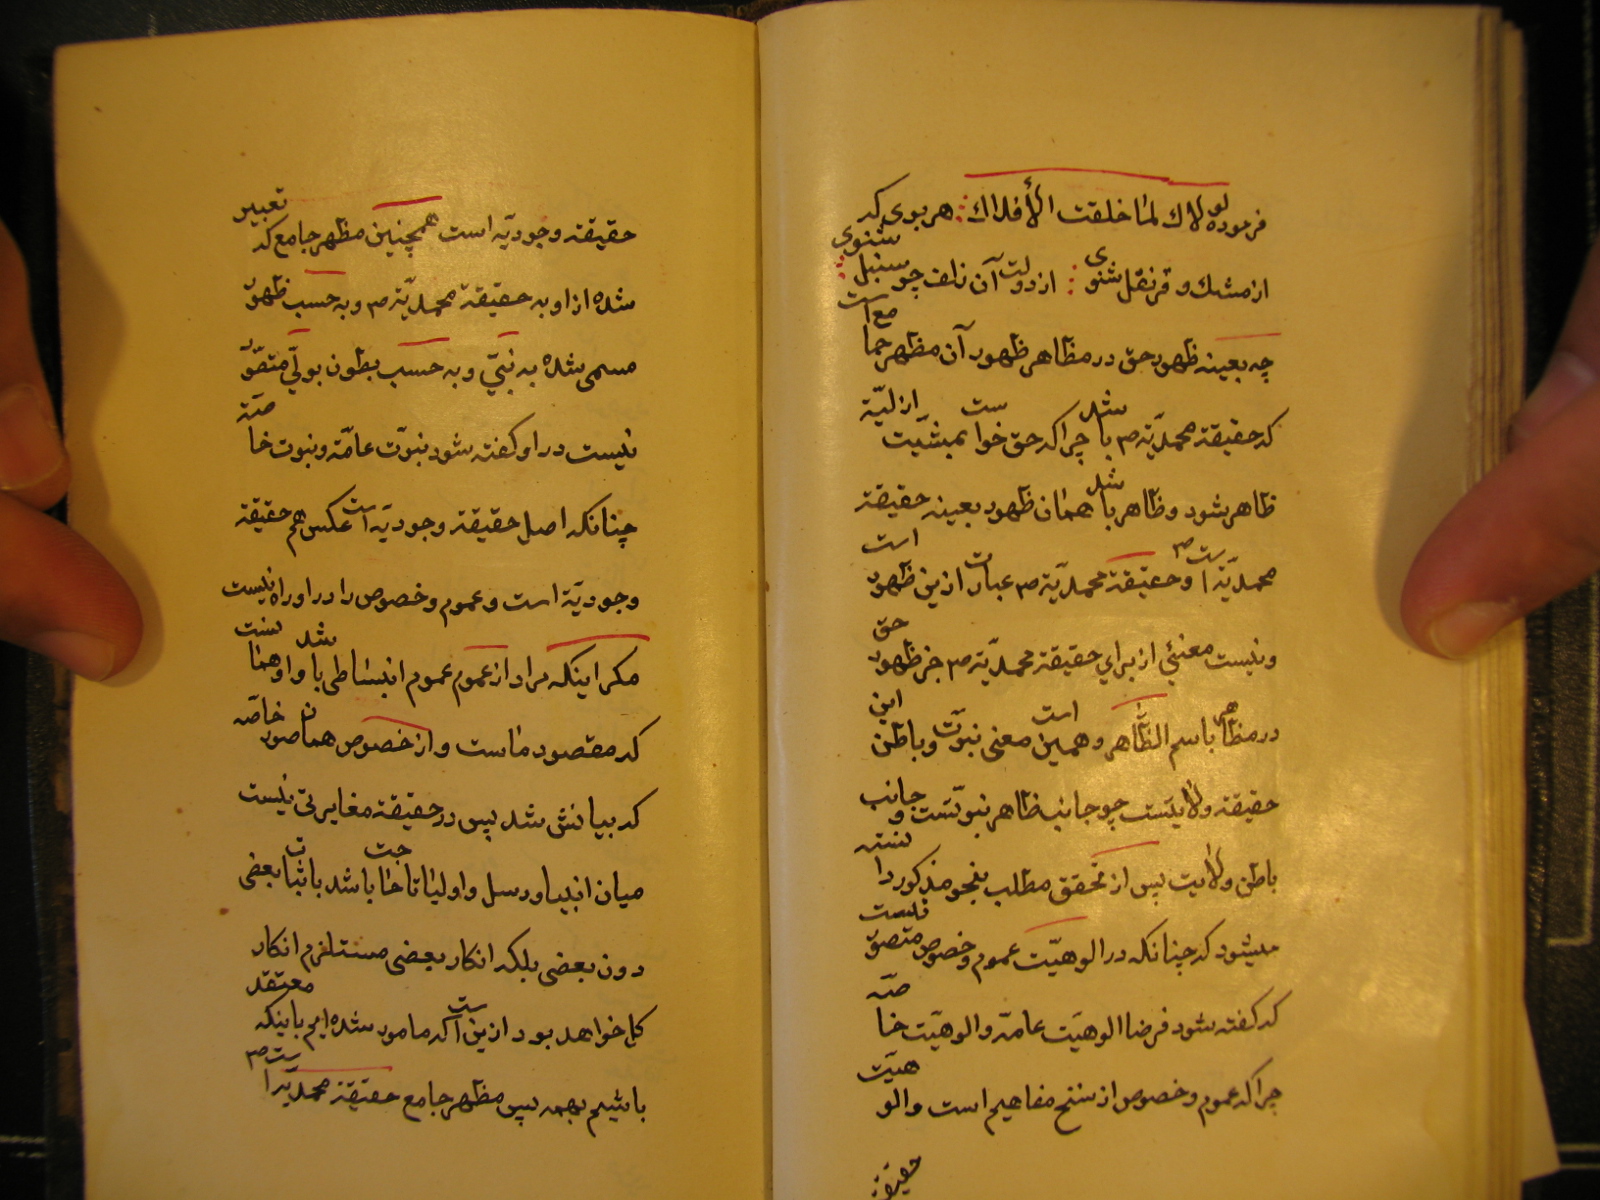 فرموده لولاك لما خلقت الأفلاك: هر بوی که
از مشك و قرنفل شنوی: از دولت آن زلف چو سنبل شنوی:
چه بعینه ظهور حق در مظاهر ظهور آن مظهر جامع است
که حقیقة محمدیّة ص باشد چرا که حق خواست بمشیّت ازلیّة
ظاهر شود و ظاهر باشد همان ظهور بعینه حقیقة
محمدیّة است ص و حقیقة محمدیّة ص عبارت از این ظهور است
و نیست معنئی از برای حقیقة محمدیّة ص جز ظهور حق
در مظاهر باسم الظّاهر و همین است معنی نبوّت و باطن این
حقیقة ولایتست چو جانب ظاهر نبوّتست و جانب
باطن ولایت پس از تحقق مطلب بنحو مذکور دانسته
میشود که چنانکه در الوهیّت عموم و خصوص متصوّر نیست
که گفته شود فرضا الوهیّت عامه و الوهیّت خاصّه
چرا که عموم و خصوص از سنخ مفاهیم است و الوهیّت
حقیقة
حقیقة وجودیّه است همچنین مظهر جامع که تعبیر
شده از او به حقیقة محمدیّة ص و به حسب ظهور
مسمی شده به نبیّ و به حسب بطون بولیّ متصوّر
نیست در او گفته شود نبوّت عامّه و نبوت خاصّه
چنانکه اصل حقیقة وجودیّه است عکس هم حقیقة
وجودیّة است و عموم و خصوص را در او راه نیست
مگر اینکه مراد از عموم عموم انبساطی باشد و او همانست
که مقصود ماست و از خصوص همان صور خاصّه
که بیانش شد پس در حقیقة مغایرتی نیست
میان انبیا و رسل و اولیا تا حاجت باشد باثبات بعضی
دون بعضی بلکه انکار بعضی مستلزم انکار
کل خواهد بود از این است که مامور شده ایم باینکه معتقد
باشیم بهمه پس مظهر جامع حقیقة محمدیّه است ص